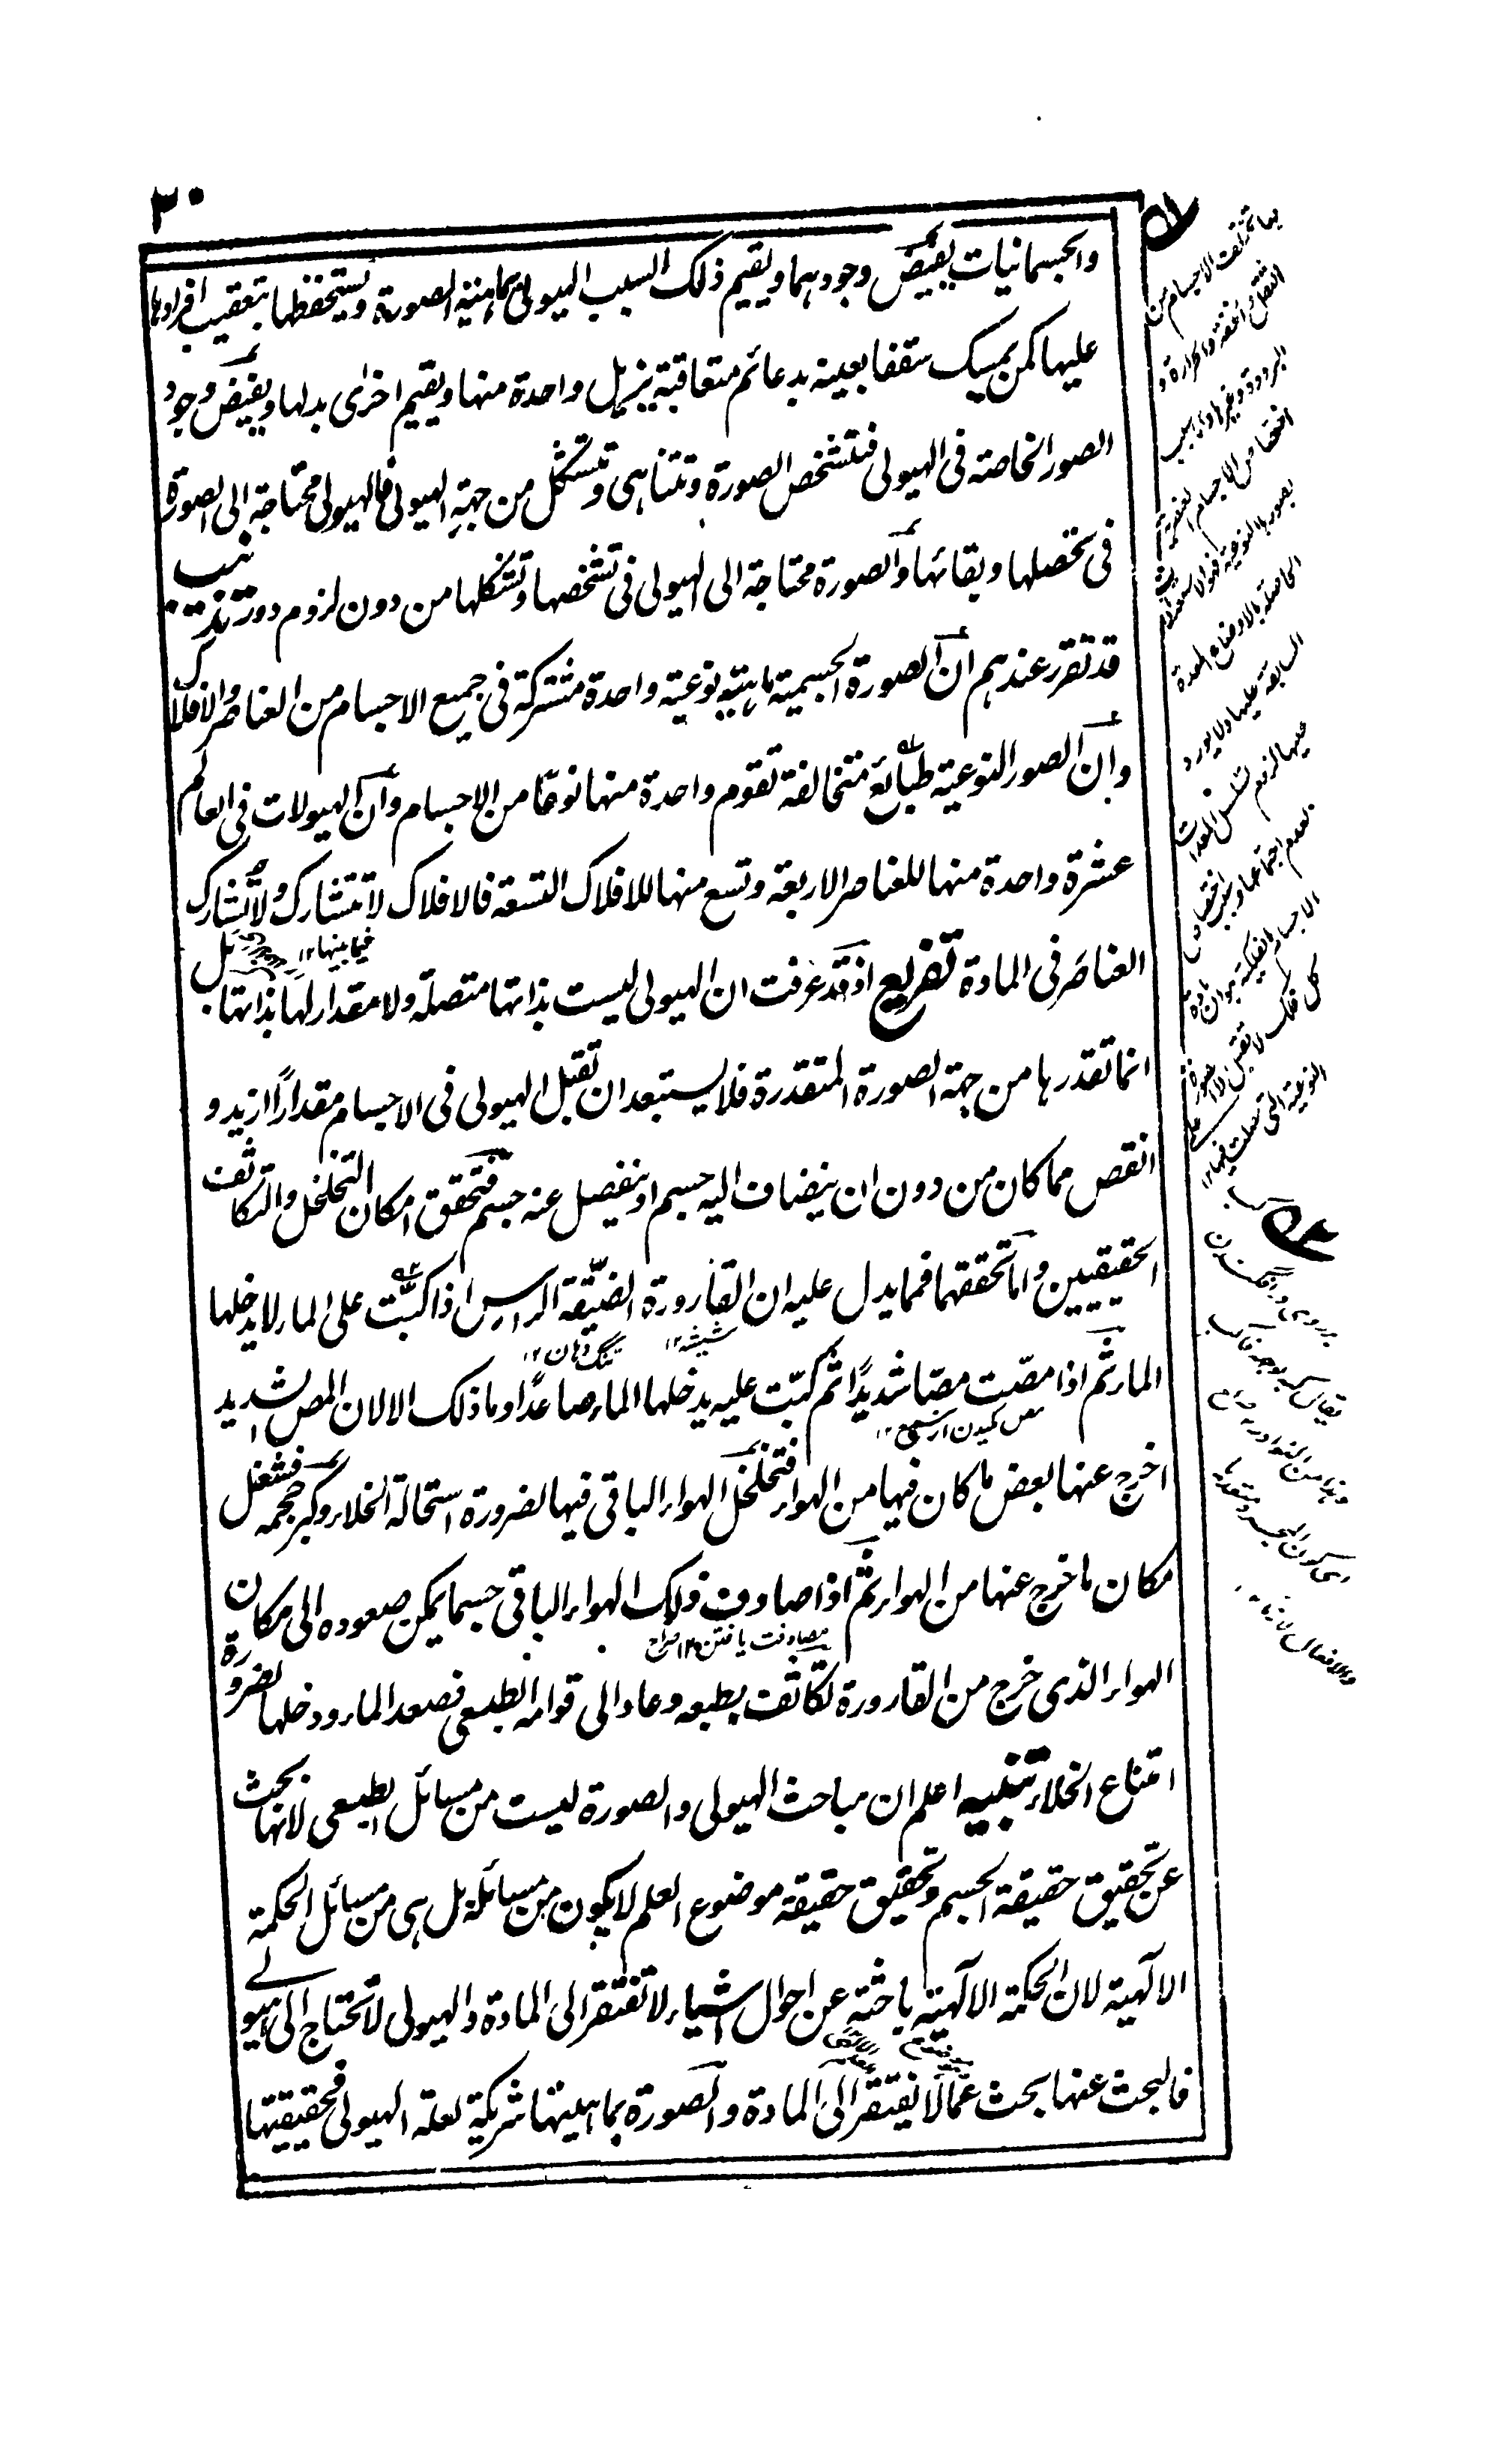 ٣٠
والجسمانيات يفيض وجودهما ويقيم ذلك السبب الهيولى بماهية الصورة ويستحفظها بتعقيب افرادها
عليها كمن يمسك سقفا بعينه بدعائم متعاقبة يزيل واحدة منها ويقيم اخرى بدلها ويفيض وجود
الصور الخاصة فى الهيولى فتتشخص الصورة وتتناهى وتتشكل من جهة الهيولى فالهيولى محتاجة الى الصورة
فى تحصلها وبقائها والصورة محتاجة الى الهيولى فى تشخصها وتشكلها من دون لزوم دور تذنيب
قد تقرر عندهم ان الصورة الجسمية ماهية نوعية واحدة مشتركة فى جميع الاجسام من العناصر والافلاك
وان الصور النوعية طبائع متخالفة تقوم واحدة منها نوعًا من الاجسام وان الهيولات فى العالم
عشرة واحدة منها للعناصر الاربعة وتسع منها للافلاك التسعة فالافلاك لا تتشارك ولا تشارك
فيما بينها ١٢
العناصر فى المادة تفريع اذ قد عرفت ان الهيولى ليست بذاتها متصلة ولا مقدار لها بذاتها بل
انما تقدرها من جهة الصورة المتقدرة فلا يستبعد ان تقبل الهيولى فى الاجسام مقدارًا ازيد و
انقص مما كان من دون ان ينضاف اليه جسم او ينفصل عنه جسم فتحقق امكان التخلخل والتكاثف
الحقيقيين واما تحققهما فمما يدل عليه ان القارورة الضيّقة الراس اذا كبّت على الماء لا يدخلها
شيشه ١٢ تنگ دهان ١٢
الماء ثم اذا مصّت مصّا شديدًا ثم كبّت عليه يدخلها الماء صاعدًا وما ذلك الا لان المص الشديد
اخرج عنها بعض ما كان فيها من الهواء فتخلخل الهواء الباقى فيها لضرورة استحالة الخلاء وكبر حجمه فشغل
مكان ما خرج عنها من الهواء ثم اذا صادف ذلك الهواء الباقى جسما يمكن صعوده الى مكان
مصادفت يافتن ١٢ صراح
الهواء الذى خرج من القارورة تكاثف بطبعه وعاد الى قوامه الطبعى فصعد الماء ودخلها لضرورة
امتناع الخلاء تنبيه اعلم ان مباحث الهيولى والصورة ليست من مسائل الطبعى لانها بحث
عن تحقيق حقيقة الجسم وتحقيق حقيقة موضوع العلم لا يكون من مسائله بل هى من مسائل الحكمة
الالٓهية لان الحكمة الالٓهية باحثة عن احوال اشياء لا تفتقر الى المادة والهيولى لا تحتاج الى هيولى
فالبحث عنها بحث عما لا يفتقر الى المادة والصورة بماهيتها شريكة لعلة الهيولى فحقيقتها
بها تختلف الاجسام من
الثقل والخفة والحرارة و
البرودة وغيرها واما سبب
اختصاص الاجسام العنصرية
بصورها النوعية فهو الاستعدادات
الحاصلة بالاوضاع المعدة
السابقة عليها ولا يورد
عليها لزوم تسلسل المعدات
لعدم اجتماعها وسبب اختصاص
الاجسام الفلكية هو ان مادة
كل فلك لا تقبل الا الصورة
النوعية التى حصلت فيها ١٢